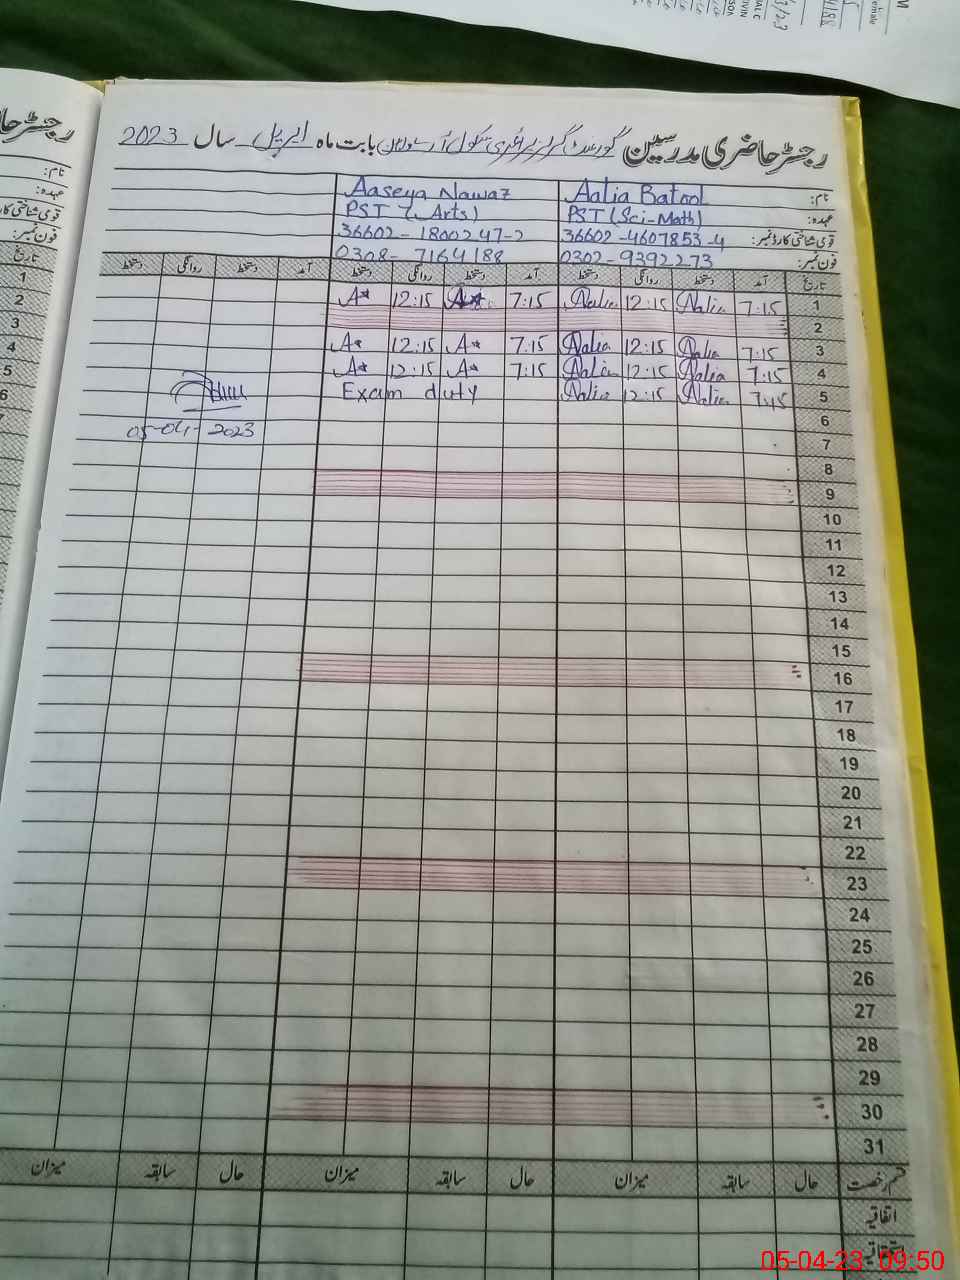 رجسٹر حاضری مدرسین گورنمنٹ گرلز پرائمری سکول بابت ماہ اپریل سال 2023
نام: Aalia Batool Aaseya Nawaz
عہدہ: PST (Sci-Math) PST (Arts)
قومی شناختی کارڈ نمبر: 36602-4607853-4 36602-1800247-2
فون نمبر: 0302-9392273 0308-7164188
تاریخ آمد دستخط روانگی دستخط آمد دستخط روانگی دستخط آمد دستخط روانگی دستخط
1 7:15 Aalia 12:15 Aalia 7:15 A* 12:15 A*
2
3 7:15 Aalia 12:15 Aalia 7:15 A* 12:15 A*
4 7:15 Aalia 12:15 Aalia 7:15 A* 12:15 A*
5 7:45 Aalia 12:15 Aalia Exam duty
6
05-04-2023
7
8
9
10
11
12
13
14
15
16
17
18
19
20
21
22
23
24
25
26
27
28
29
30
31
قسم رخصت حال سابقہ میزان حال سابقہ میزان حال سابقہ میزان
اتفاقیہ
استحقاقیہ
05-04-23 09:50